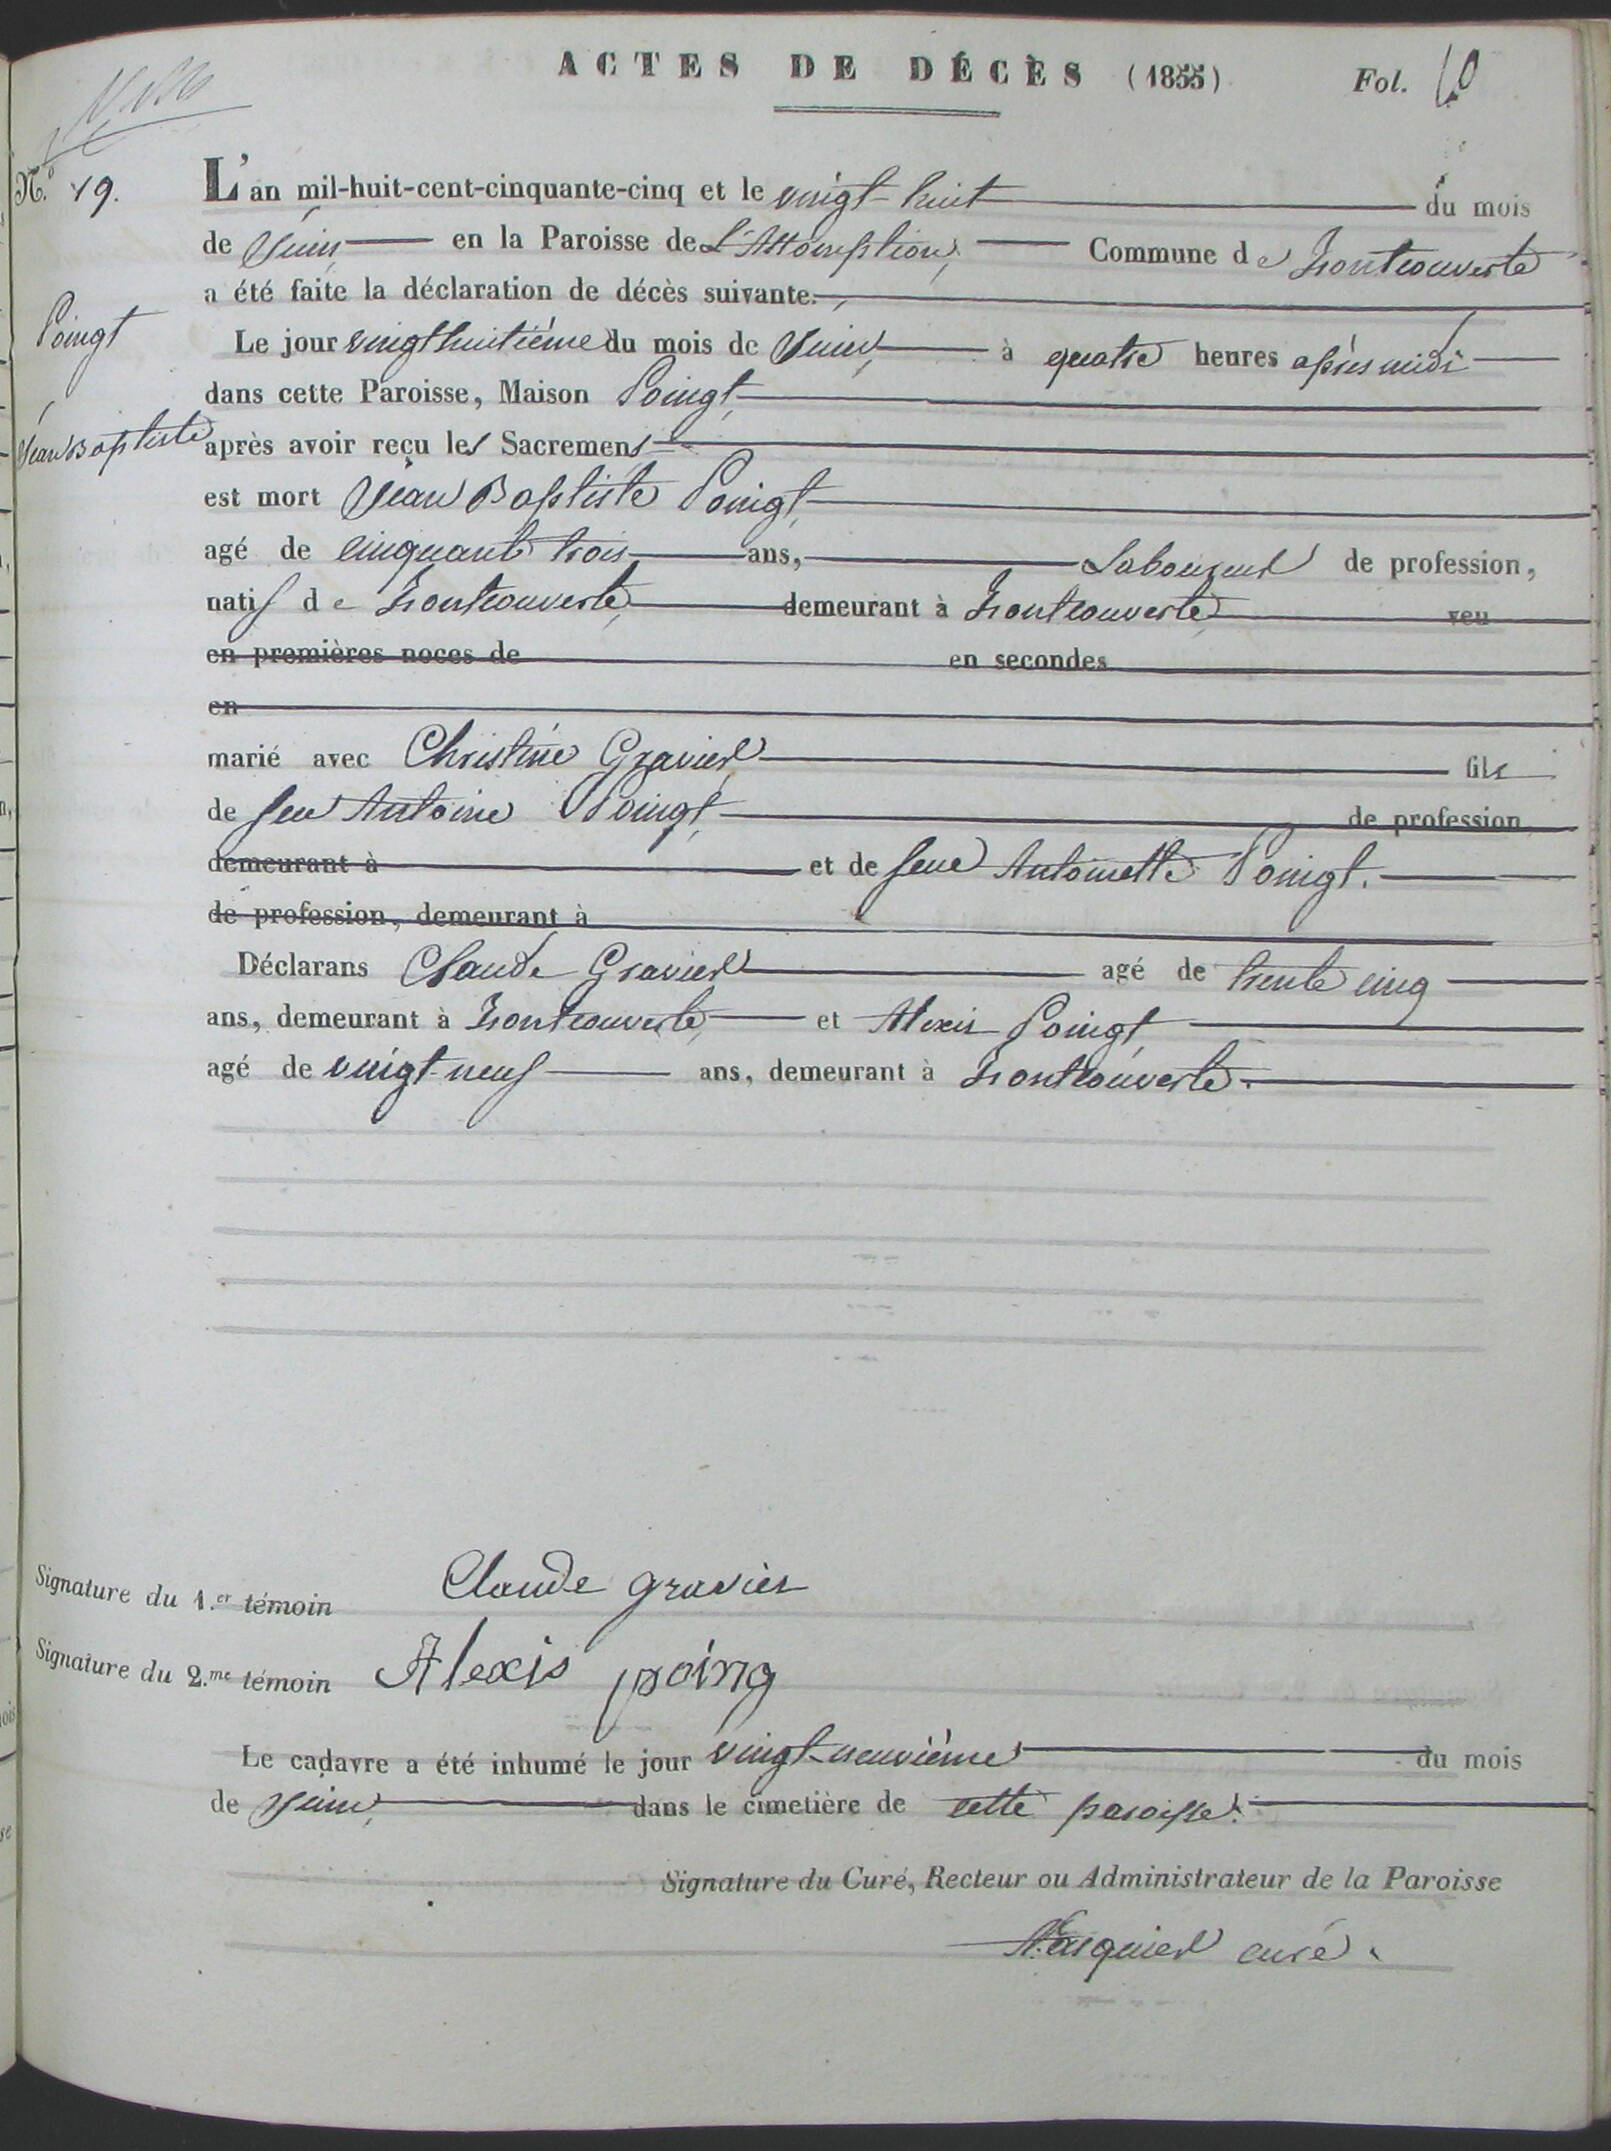 ACTES DE DÉCÈS (1855) Fol. 10
N.o 19.
L'an mil-huit-cent-cinquante-cinq et le vingt-huit du mois
de Juin en la Paroisse de L'Assomption, Commune de Montcouverte
a été faite la déclaration de décès suivante.
Poingt
Le jour vingt huitième du mois de Juin, à quatre heures après midi
dans cette Paroisse, Maison Poingt
Jean Baptiste
après avoir reçu les Sacremens
est mort Jean Baptiste Poingt
agé de cinquante trois ans, Laboureur de profession,
natif de Fontcouverte, demeurant à Fontcouverte veu
en premières noces de en secondes
en
marié avec Christine Gravier fils
de feu Antoine Poingt, de profession
demeurant à et de feue Antoinette Poingt.
de profession, demeurant à
Déclarans Claude Gravier agé de trente cinq
ans, demeurant à Fontcouverte, et Alexis Poingt
agé de vingt-neuf ans, demeurant à Fontcouverte.
Signature du 1.er témoin Claude gravier
Signature du 2.me témoin Alexis poing
Le cadavre a été inhumé le jour vingt-neuvième du mois
de Juin, dans le cimetière de cette paroisse.
Signature du Curé, Recteur ou Administrateur de la Paroisse
curé.